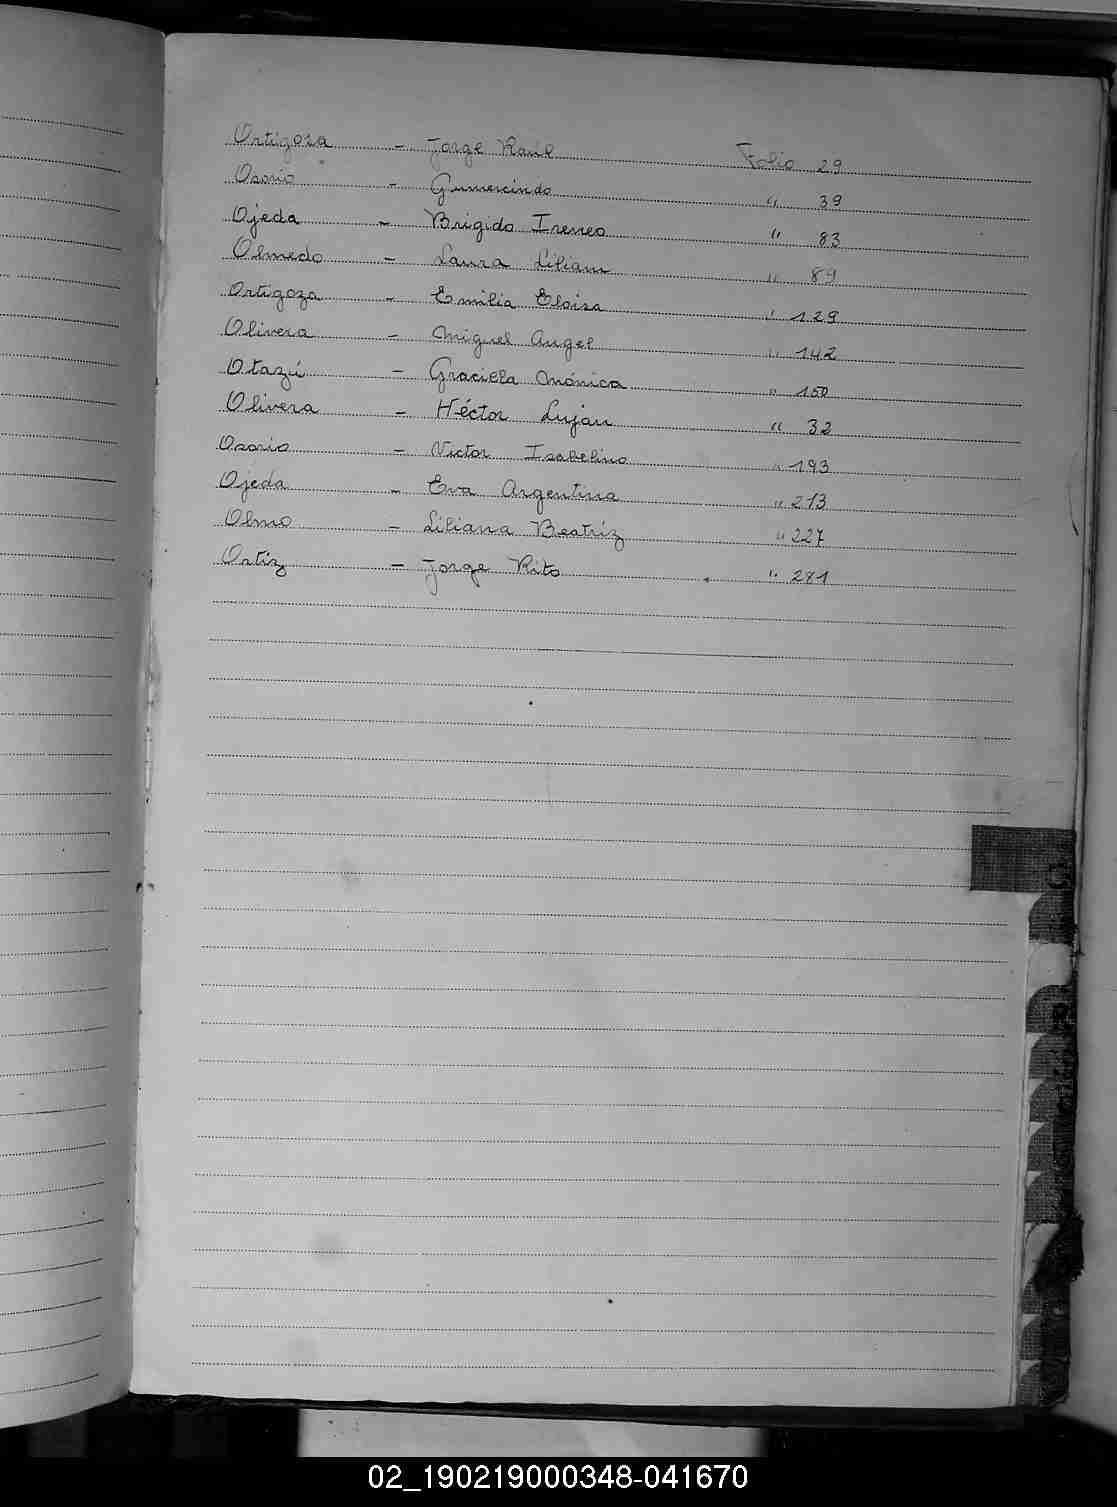 Ortigoza - Jorge Raúl Folio 29
Osorio - Gumercindo " 39
Ojeda - Brigido Ireneo " 83
Olmedo - Laura Liliam " 89
Ortigoza - Emilia Eloisa " 129
Olivera - Miguel Angel " 142
Otazú - Graciela Mónica " 150
Olivera - Héctor Luján " 32
Osorio - Victor Isabelino " 193
Ojeda - Eva Argentina " 213
Olmo - Liliana Beatríz " 227
Ortíz - Jorge Rito " 281
02_190219000348-041670